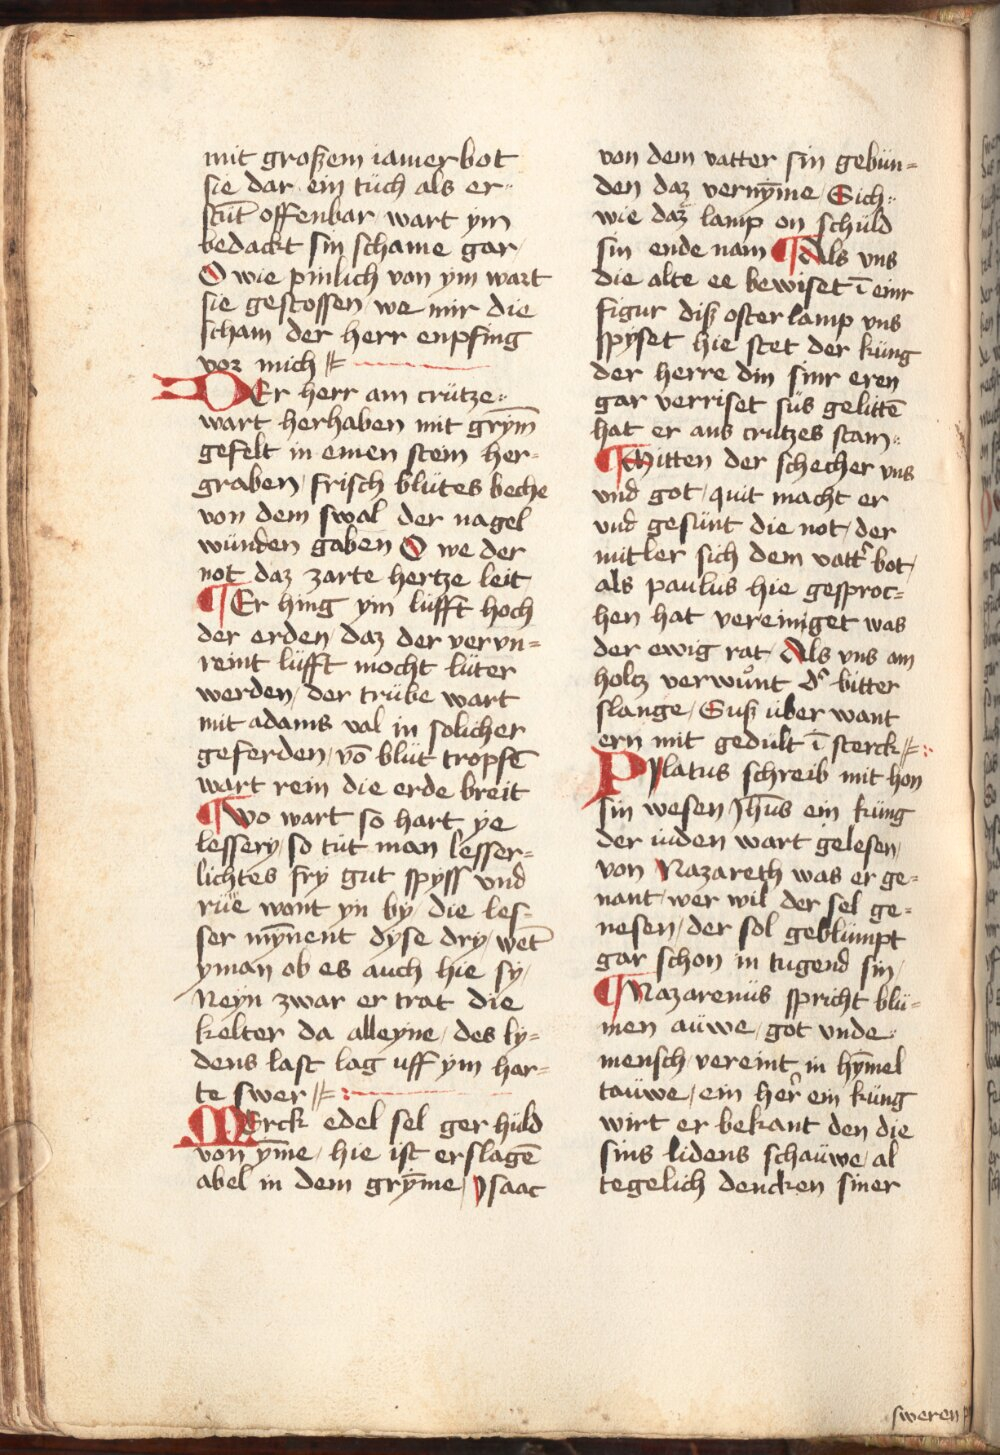 mit großem iamer bot
sie dar ein tüch als er-
stüt offenbar wart ym
bedackt sin schame gar
O wie pinlich von ym wart
sie gestossen we mir die
scham der herr enpfing
vor mich
DEr herr am crütze
wart herhaben mit grym̄
gefelt in einen stein her-
graben frisch blütes beche
von dem swal der nagel
wünden gaben O we der
not daz zarte hertze leit
¶ Er hing ym lüfft hoch
der erden daz der vervn-
reint lüfft mocht lüter
werden der trübe wart
mit adams val in solicher
geferden vō blüt tropfē
wart rein die erde breit
¶ Wo wart so hart ye
lessery so tüt man lesser-
lichtes fry gut spyss vnd
rüe wont yn by die les-
ser mȳnent dyse dry wēt
yman ob es auch hie sy
Neyn zwar er trat die
kelter da alleyne des ly-
dens last lag uff ym har-
te swer
MErck edel sel ger hüld
von ȳme hie ist erslagē
abel in dem grȳme ysaac
von dem vatter sin gebün-
den daz vernȳme Sich
wie daz lamp on schüld
sin ende nam ¶ Als vns
die alte ee bewiset ī einr
figur diß oster lamp vns
spyset hie stet der küng
der herre din sinr eren
gar verriset süs gelittē
hat er ans crutzes stam
¶ Mitten der schecher vns
vnd got quit macht er
vnd gesünt die not der
mitler sich dem vatt᷑ bot
als paulus hie gesproc-
hen hat vereiniget was
der ewig rat Als vns am
holcz verwuͦnt d᷑ bitter
slange Suß über want
ern mit gedult ī sterck
PYlatus schreib mit hon
sin wesen Jh̄us ein küng
der iuden wart gelesen
von Nazareth was er ge-
nant wer wil der sel ge-
nesen der sol geblümpt
gar schon in tugend sin
¶ Nazarenüs spricht blü-
men aüwe got vnde
mensch vereint in hȳmel
taüwe ein her᷑ ein küng
wirt er bekant den die
sins lidens schaüwe al
tegelich dencken siner
sweren